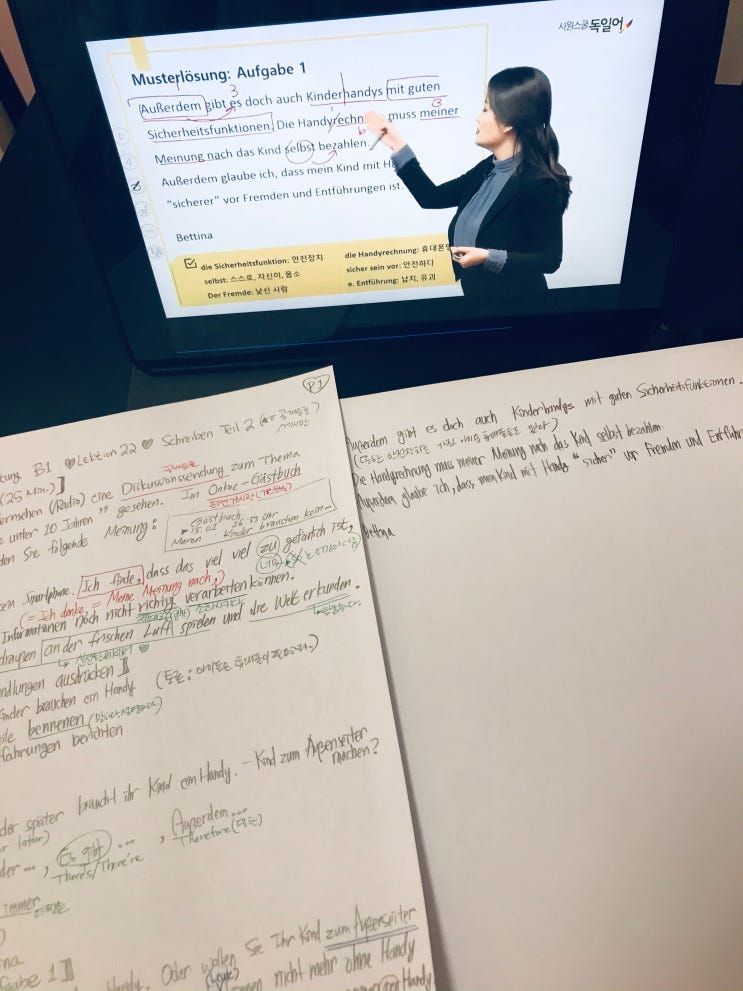 시원스쿨 독일어
Musterlösung: Aufgabe 1
Außerdem gibt es doch auch Kinderhandys mit guten
Sicherheitsfunktionen. Die Handyrechn muss meiner
Meinung nach das Kind selbst bezahlen.
Außerdem glaube ich, dass mein Kind mit H
"sicherer" vor Fremden und Entführungen ist.
Bettina
die Sicherheitsfunktion: 안전장치
selbst: 스스로, 자신이, 몸소
Der Fremde: 낯선 사람
die Handyrechnung: 휴대폰
sicher sein vor: 안전하다
e. Entführung: 납치, 유괴
P1
tung B1 ♥Lektion 22 ♥ Schreiben Teil 2
(25 Min.)]
ernsehen (/Radio) eine Diskussionssendung zum Thema
e unter 10 Jahren" gesehen. Im Online-Gästbuch
den Sie folgende Meinung:
Gästbuch
Maren Kinder brauchen kein
em Smartphone. Ich finde, dass das viel viel zu gefährlich ist,
(= Ich denke, = Meine Meinung nach,)
Informationen noch nicht richtig verarbeiten können.
draußen an der frischen Luft spielen und die Welt erkunden.
ndlungen ausdrücken]
Kinder brauchen ein Handy
ile bennenen
fahrungen berichten
der später braucht ihr Kind ein Handy. - Kind zum Außenseiter
machen?
r later)
der ..., Es gibt ..., Außerdem...
There's/There're
Therefore (또한)
immer
na
fgabe 1]
Handy. Oder wollen Sie Ihr Kind zum Außenseiter
nen nicht mehr ohne Handy
Außerdem gibt es doch auch Kinderhandys mit guten Sicherheitsfunktionen.
Die Handyrechnung muss meiner Meinung nach das Kind selbst bezahlen.
Außerdem glaube ich, dass mein Kind mit Handy "sicher" vor Fremden und Entführ
Bettina